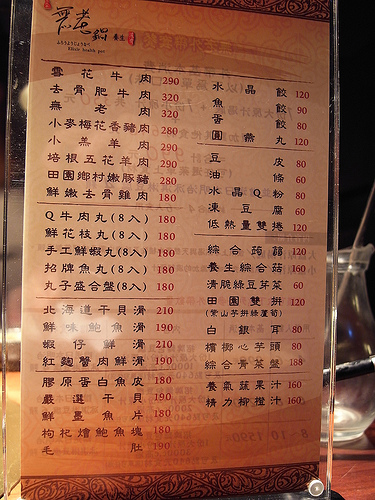 無老鍋 養生
Elixir health pot
雪花牛肉 290
去骨肥牛肉 320
無老肉 320
小麥梅花香豬肉 280
小羔羊肉 290
培根五花羊肉 290
田園鄉村嫩豚豬 280
鮮嫩去骨雞肉 180
Q牛肉丸(8入) 180
鮮花枝丸(8入) 180
手工鮮蝦丸(8入) 180
招牌魚丸(8入) 180
丸子盛合盤(8入) 180
北海道干貝滑 210
鮮味鮑魚滑 190
蝦仔鮮滑 190
紅麴蟹肉鮮滑 190
膠原蛋白魚皮 180
嚴選干貝 190
鮮墨魚片 180
枸杞燴鮑魚塊 180
毛肚 190
水晶餃 120
魚餃 90
蛋餃 80
圓燕丸 120
豆皮 80
油條 60
水晶Q粉 80
凍豆腐 60
低熱量雙捲 120
綜合蒟蒻 120
養生綜合菇 160
清脆綠豆芽菜 60
田園雙拼 120
(紫山芋拼綠蘆筍)
白銀耳 80
檳榔心芋頭 80
綜合青菜盤 188
養氣蔬果汁 160
精力柳橙汁 160